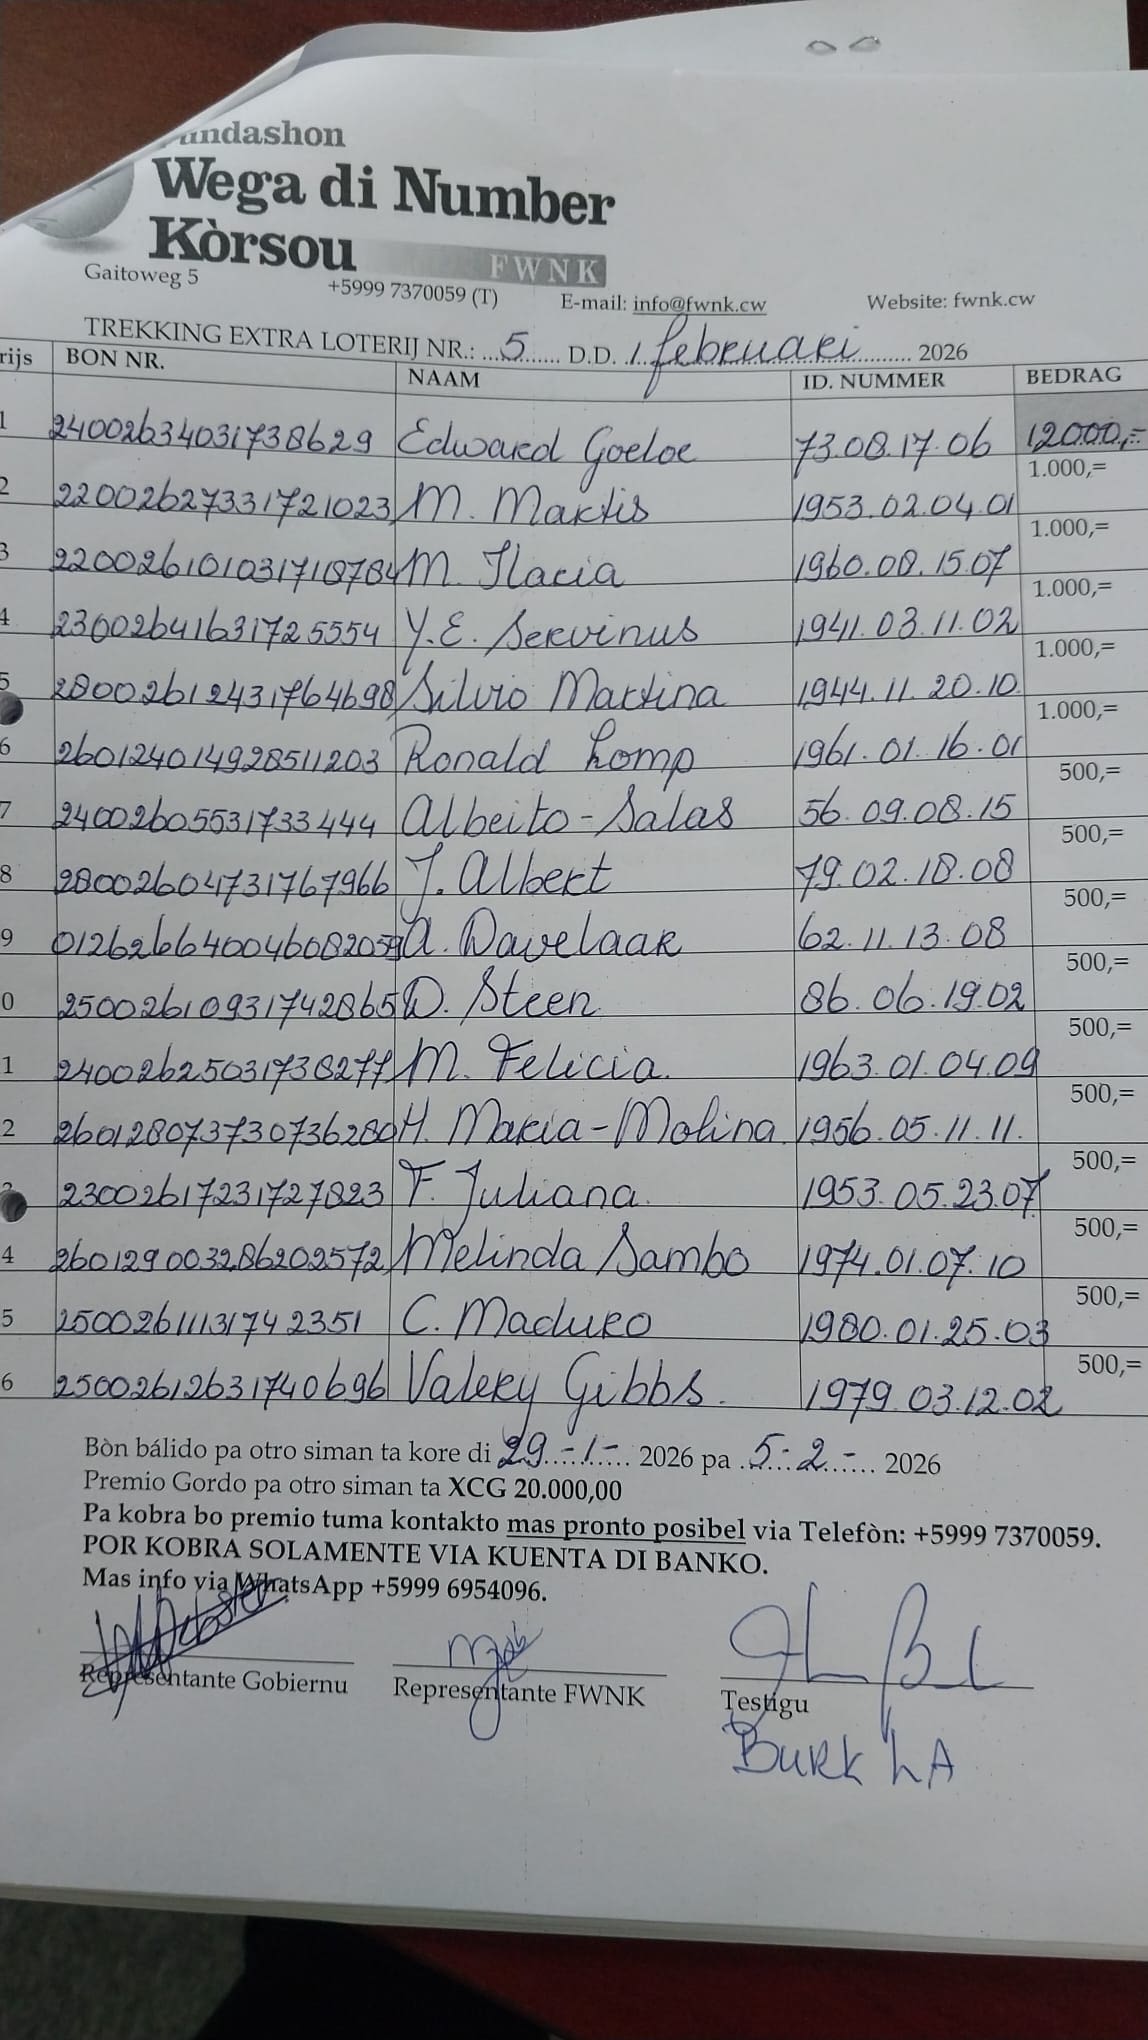 undashon
Wega di Number
Kòrsou
FWNK
Gaitoweg 5 +5999 7370059 (T) E-mail: info@fwnk.cw Website: fwnk.cw
TREKKING EXTRA LOTERIJ NR.: ...5...... D.D. 1 februari ......... 2026
rijs BON NR. NAAM ID. NUMMER BEDRAG
1 24002634031738629 Edward Goeloe 73.08.17.06 12000,=
2 22002627331721023 M. Martis 1953.02.04.01 1.000,=
3 220026101031718784 M. Ilacia 1960.08.15.07 1.000,=
4 23002641631725554 Y.E. Servinus 1941.03.11.02 1.000,=
5 28002612431764698 Silvio Martina 1944.11.20.10 1.000,=
6 260124014928511203 Ronald Lomp 1961.01.16.01 1.000,=
7 24002605531733444 Albeito-Salas 56.09.08.15 500,=
8 28002604731767966 J. Albert 79.02.18.08 500,=
9 A. Davelaar 62.11.13.08 500,=
0 25002610931742865 D. Steen 86.06.19.02 500,=
1 24002625031738277 M. Felicia 1963.01.04.09 500,=
2 260128073730736280 H. Maria-Molina 1956.05.11.11. 500,=
23002617231727823 F. Juliana 1953.05.23.07 500,=
4 260129003286202572 Melinda Sambo 1974.01.07.10 500,=
5 25002611131742351 C. Maduro 1980.01.25.03 500,=
6 25002612631740696 Valery Gibbs. 1979.03.12.02 500,=
500,=
Bòn bálido pa otro siman ta kore di 29.-1-... 2026 pa .5-2.-... 2026
Premio Gordo pa otro siman ta XCG 20.000,00
Pa kobra bo premio tuma kontakto mas pronto posibel via Telefòn: +5999 7370059.
POR KOBRA SOLAMENTE VIA KUENTA DI BANKO.
Mas info via WhatsApp +5999 6954096.
Representante Gobiernu Representante FWNK Testigu
Burk LA